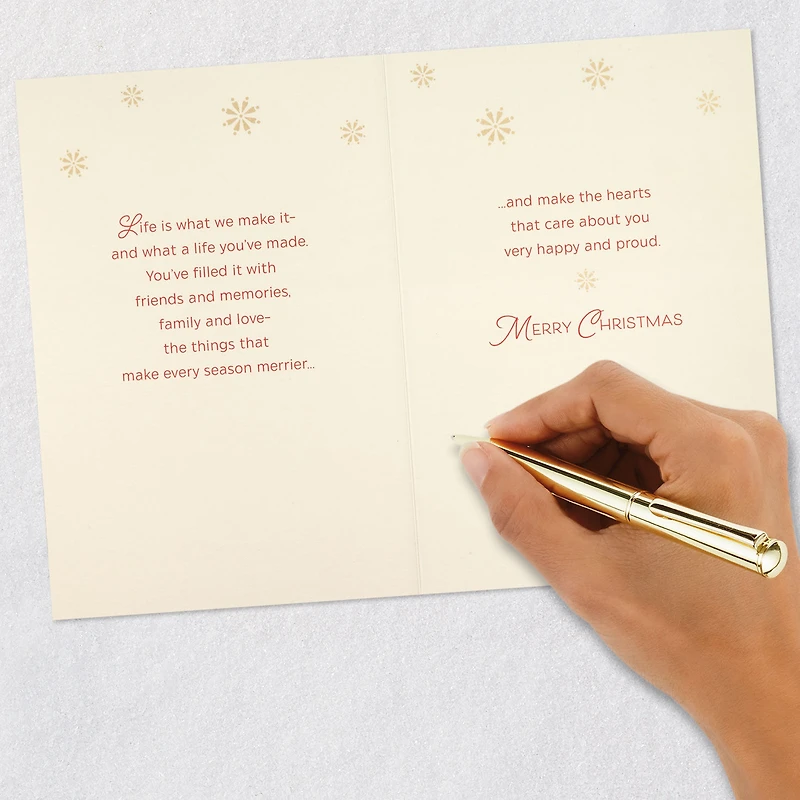 Life is what we make it–
and what a life you've made.
You've filled it with
friends and memories,
family and love–
the things that
make every season merrier...
...and make the hearts
that care about you
very happy and proud.
Merry Christmas